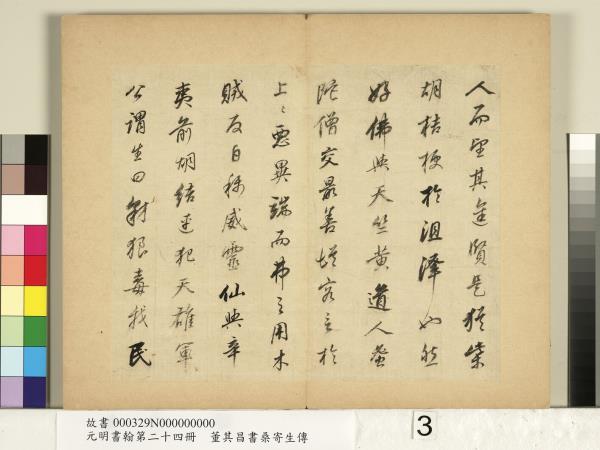 人而望其進賢是猶柴
胡桔梗於沮澤然
好佛與天竺黃道人蜜
陀僧交最善從容言於
上〻惡異端而弗之用木
賊反自稱威靈仙與辛
夷前胡結連犯天雄軍
公謂生曰豺狼毒我民
故書 000329N000000000
元明書翰第二十四冊　董其昌書桑寄生傳
3